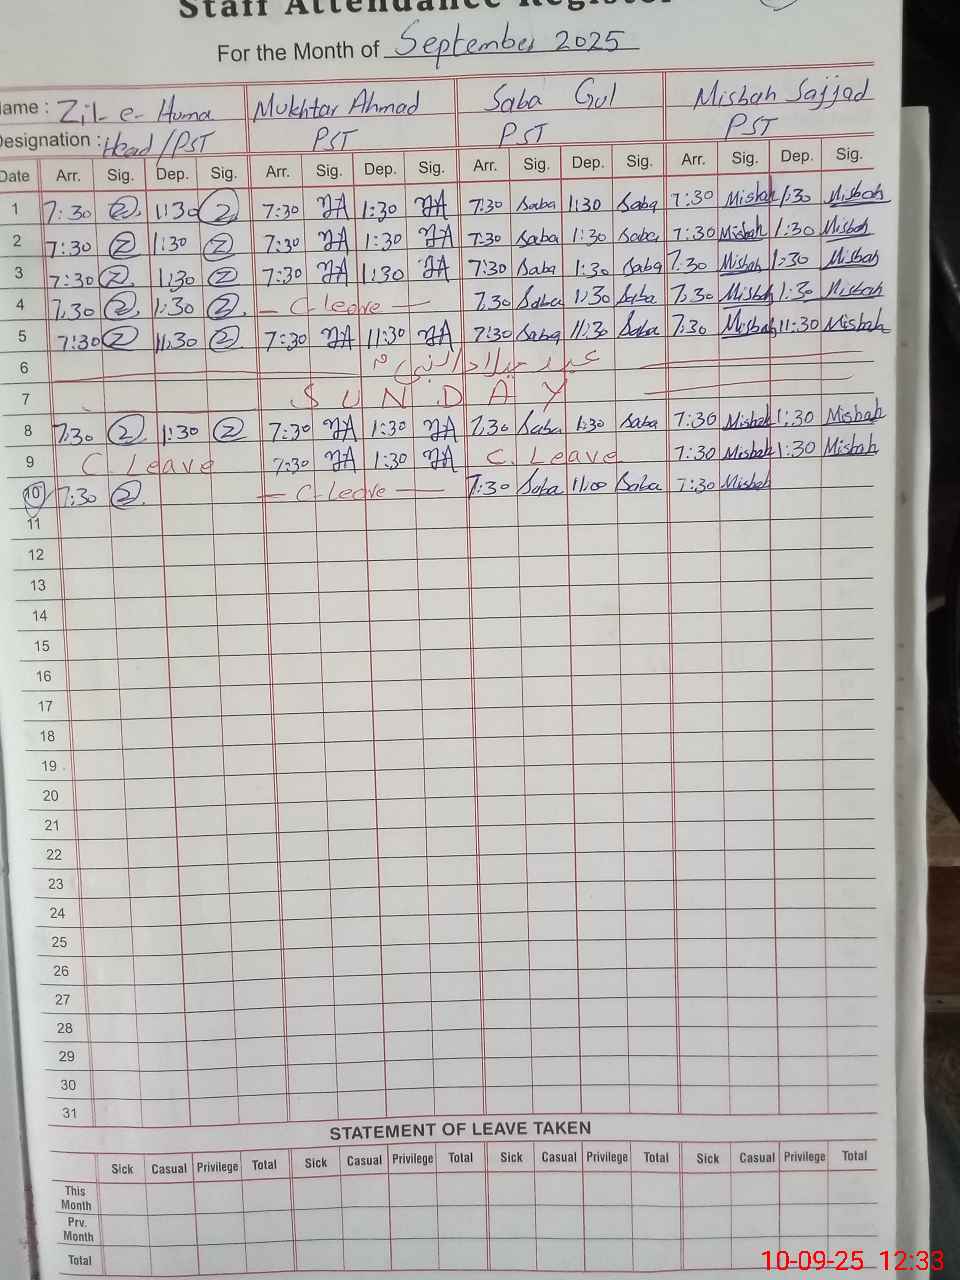 Staff Attendance Register
For the Month of September 2025
Name : Zil-e-Huma Mukhtar Ahmad Saba Gul Misbah Sajjad
Designation : Head/PST PST PST PST
Date Arr. Sig. Dep. Sig. Arr. Sig. Dep. Sig. Arr. Sig. Dep. Sig. Arr. Sig. Dep. Sig.
1 7:30 2 1:30 2 7:30 1:30 7:30 Saba 1:30 Saba 7:30 Misbah 1:30 Misbah
2 7:30 2 1:30 2 7:30 1:30 7:30 Saba 1:30 Saba 7:30 Misbah 1:30 Misbah
3 7:30 2 1:30 2 7:30 1:30 7:30 Saba 1:30 Saba 7:30 Misbah 1:30 Misbah
4 7:30 2 1:30 2 — C-leave — 7:30 Saba 1:30 Saba 7:30 Misbah 1:30 Misbah
5 7:30 2 11:30 2 7:30 11:30 7:30 Saba 11:30 Saba 7:30 Misbah 11:30 Misbah
6 عید میلادالنبیؐ
7 SUNDAY
8 7:30 2 1:30 2 7:30 1:30 7:30 Saba 1:30 Saba 7:30 Misbah 1:30 Misbah
9 C. Leave 7:30 1:30 C. Leave 7:30 Misbah 1:30 Misbah
10 7:30 2 — C-Leave — 7:30 Saba 11:00 Saba 7:30 Misbah
11
12
13
14
15
16
17
18
19
20
21
22
23
24
25
26
27
28
29
30
31
STATEMENT OF LEAVE TAKEN
Sick Casual Privilege Total Sick Casual Privilege Total Sick Casual Privilege Total Sick Casual Privilege Total
This Month
Prv. Month
Total
10-09-25 12:33